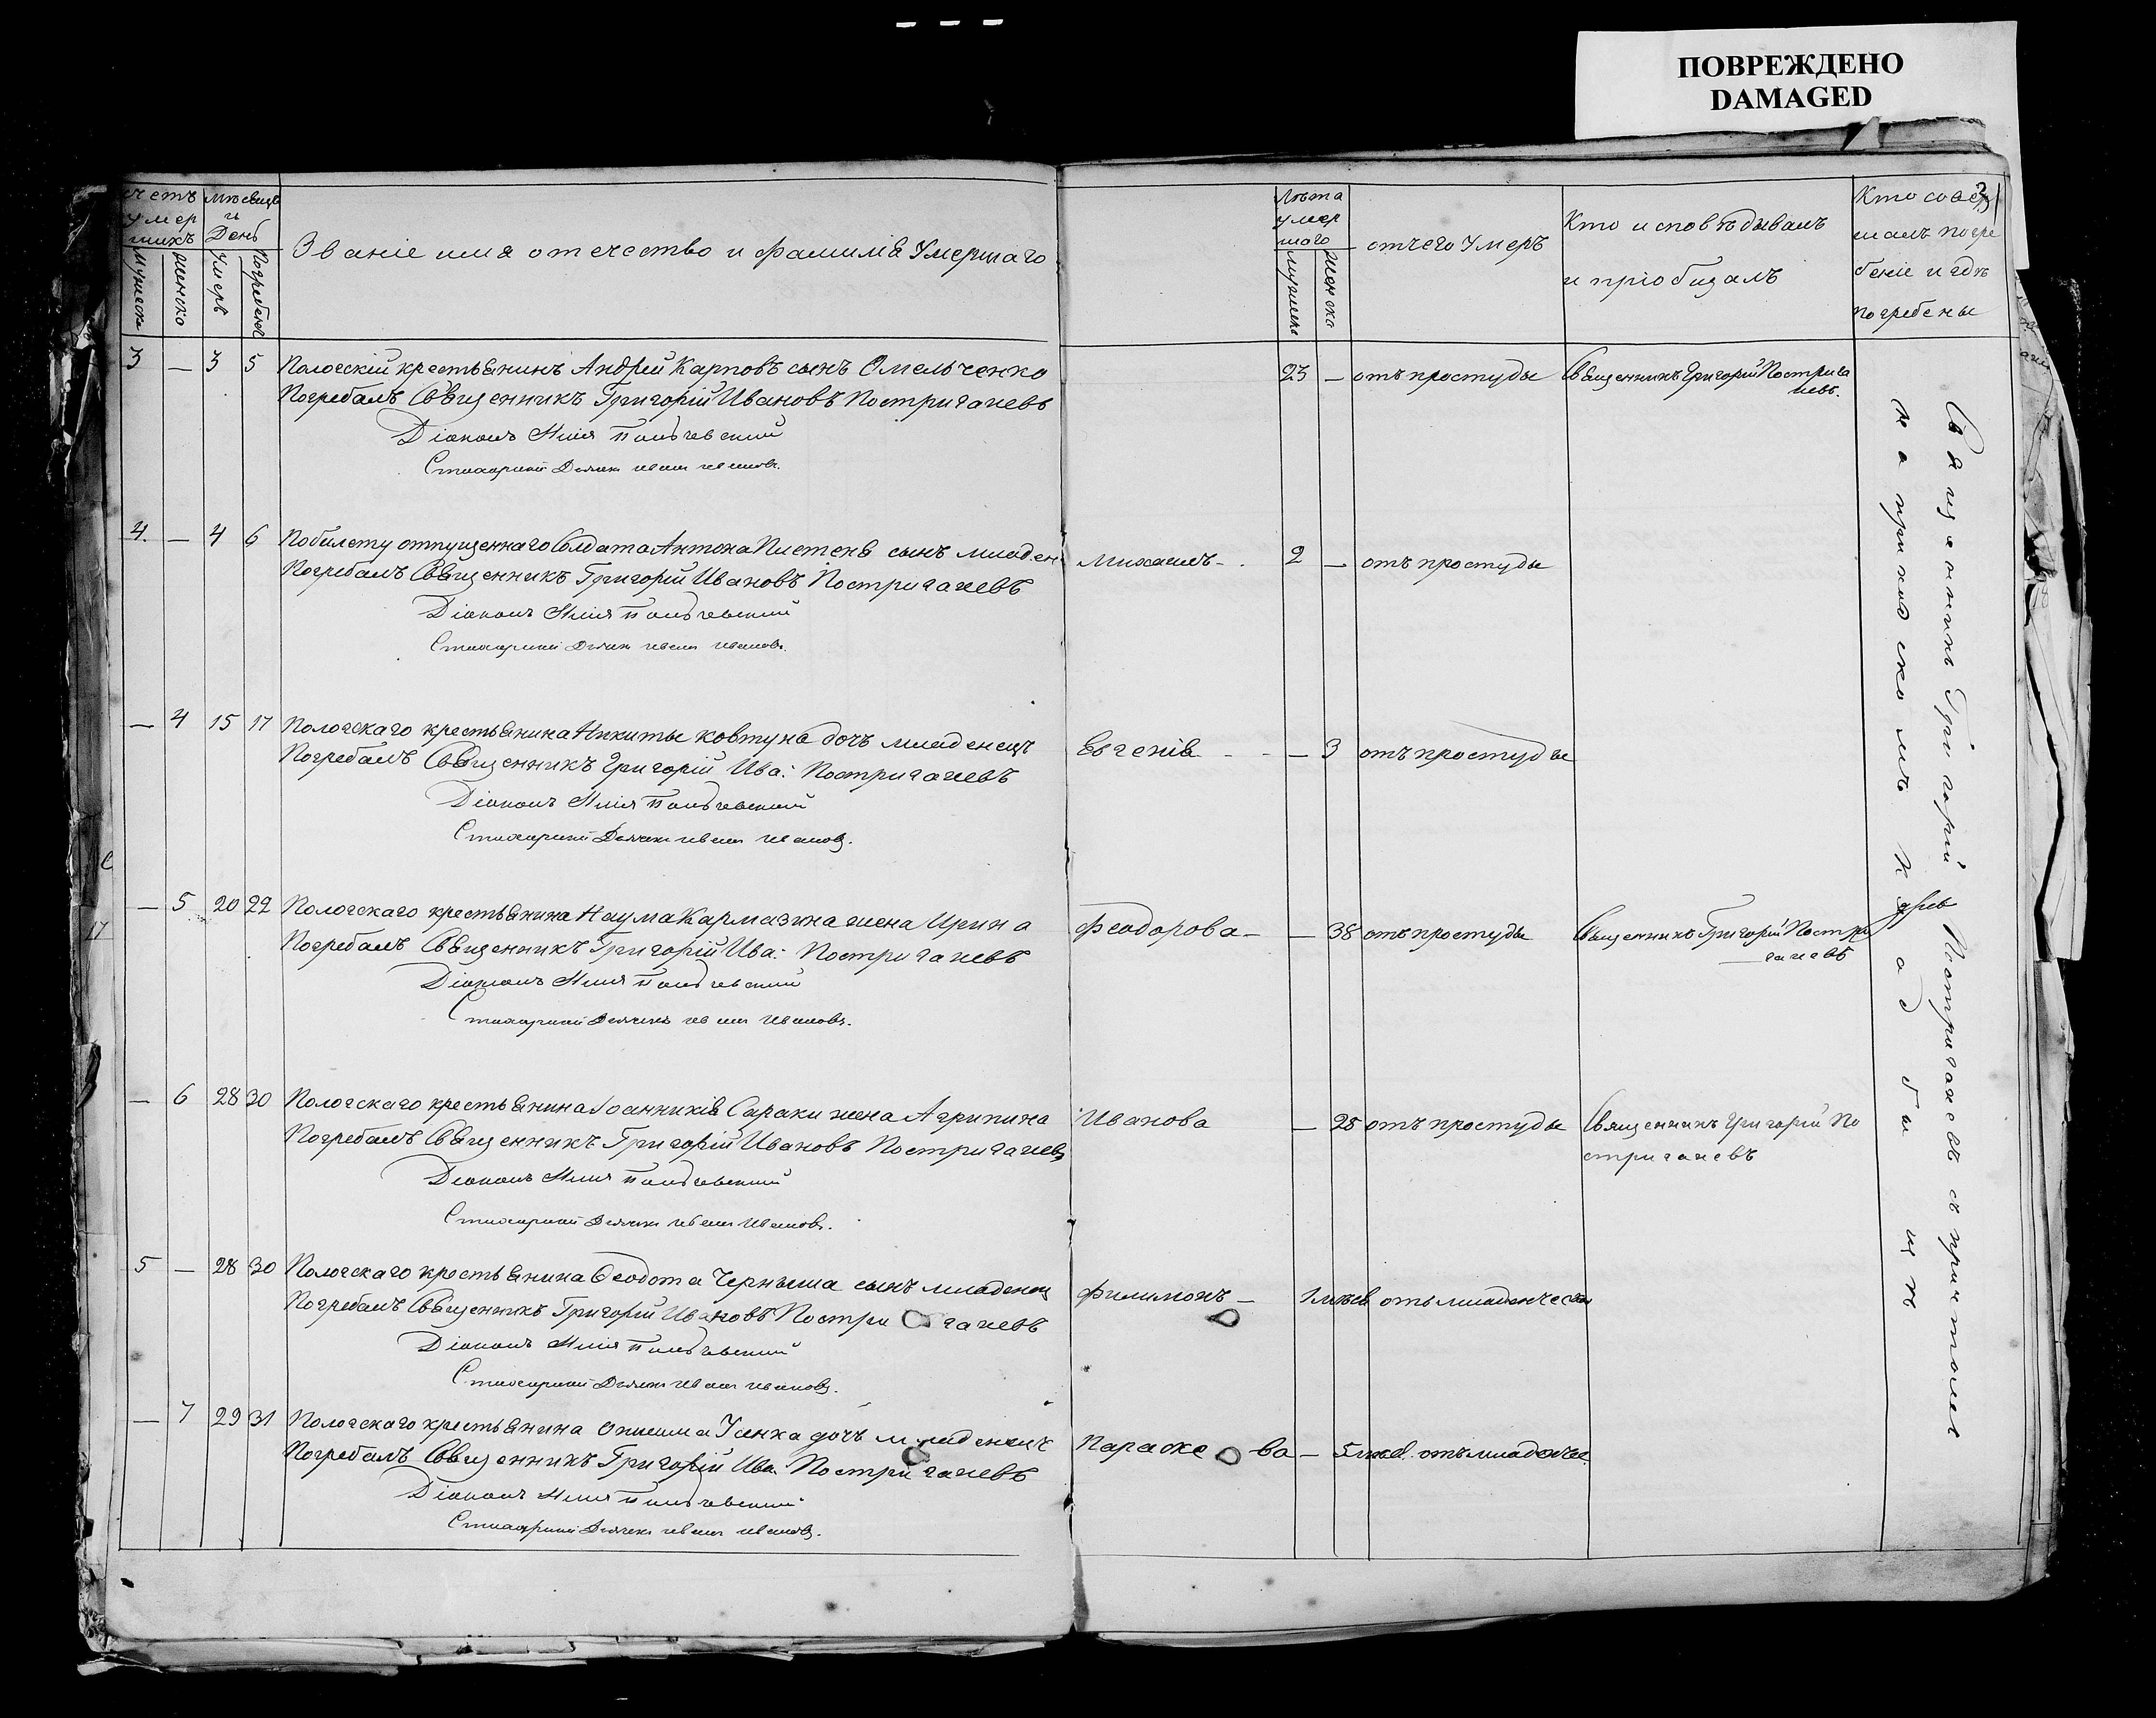 ПОВРЕЖДЕНО
DAMAGED
Счетъ умершихъ
Мѣсяцъ и День
Званіе имя отечество и фамилія Умершаго
Лѣта умершаго
отчего Умеръ
Кто исповѣдывалъ и пріобщалъ
Кто совершалъ погребеніе и гдѣ погребены
мужеска
женска
Умеръ
Погребенъ
мужеска
женска
3 — 3 5 Пологскій крестьянинъ Андрей Карповъ сынъ Омельченко 23 — отъ простуды Священникъ Григорій Постригачевъ.
Погребалъ Священникъ Григорій Ивановъ Постригачевъ
Діаконъ Илія
Стихарный Дьячекъ Иванъ Ивановъ.
4. — 4 6 По билету отпущеннаго Солдата Антона сынъ младен. Михаилъ — 2 — отъ простуды
Погребалъ Священникъ Григорій Ивановъ Постригачевъ
Діаконъ Илія
Стихарный Дьячекъ Иванъ Ивановъ.
— 4 15 17 Пологскаго крестьянина Никиты Ковтуна дочь младенецъ Евгенія — — 3 отъ простуды
Погребалъ Священникъ Григорій Ива: Постригачевъ
Діаконъ Илія
Стихарный Дьячекъ Иванъ Ивановъ.
— 5 20 22 Пологскаго крестьянина Наума Кармазина жена Ирина Феодорова — — 38 отъ простуды Священникъ Григорій Постригачевъ
Погребалъ Священникъ Григорій Ива: Постригачевъ
Діаконъ Илія
Стихарный Дьячекъ Иванъ Ивановъ.
— 6 28 30 Пологскаго крестьянина Іоанникія Сараки жена Агрипина Иванова — 25 отъ простуды Священникъ Григорій Постригачевъ
Погребалъ Священникъ Григорій Ивановъ Постригачевъ
Діаконъ Илія
Стихарный Дьячекъ Иванъ Ивановъ.
5 — 28 30 Пологскаго крестьянина Феодота Черныша сынъ младенец Филимонъ — 1 мѣсе отъ младенчес
Погребалъ Священникъ Григорій Ивановъ Постригачевъ
Діаконъ Илія
Стихарный Дьячекъ Иванъ Ивановъ.
— 7 29 31 Пологскаго крестьянина Онисима Усенка дочь младенецъ Параскева — 5 отъ младенчес.
Погребалъ Священникъ Григорій Ива. Постригачевъ
Діаконъ Илія
Стихарный Дьячекъ Иванъ Ивановъ.
Священникъ Григорій Постригачевъ съ причтомъ
на приходскомъ Кладбищѣ